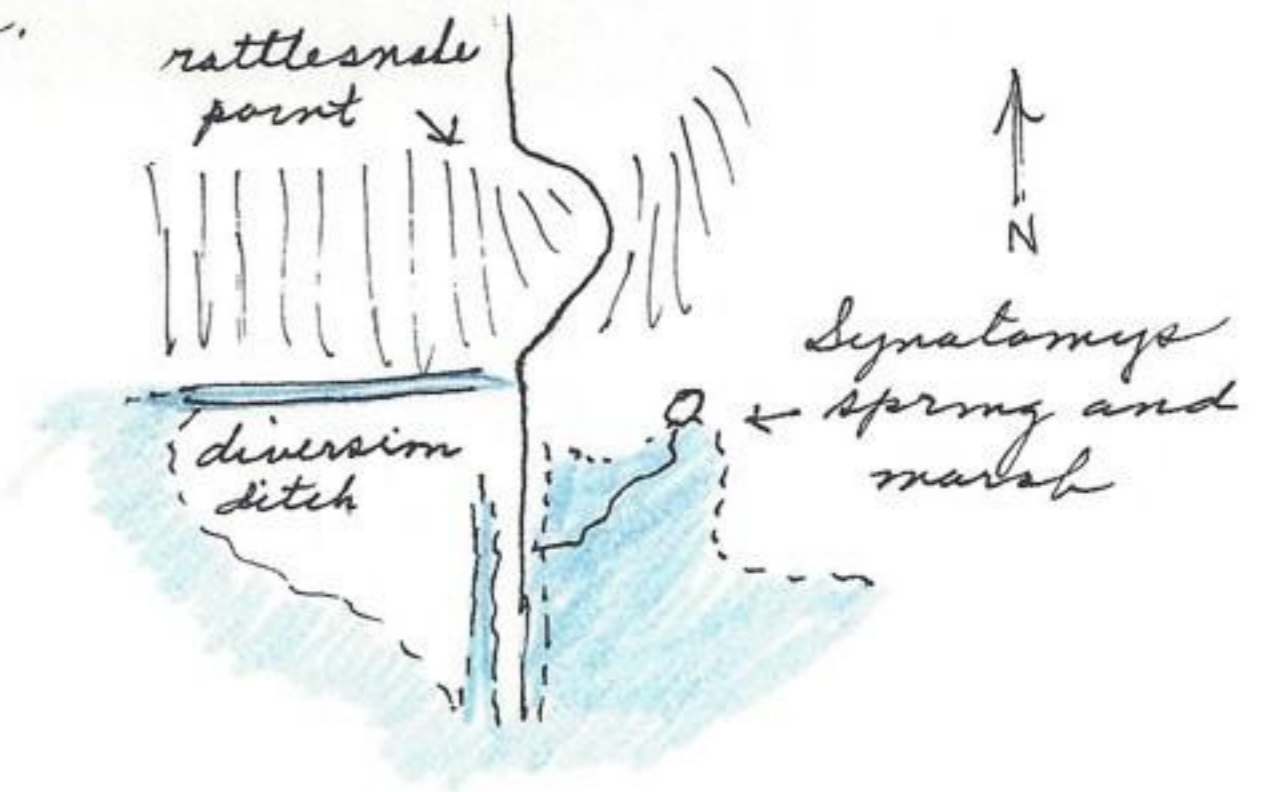 rattlesnake
point
N
Synaptomys
spring and
marsh
diversion
ditch